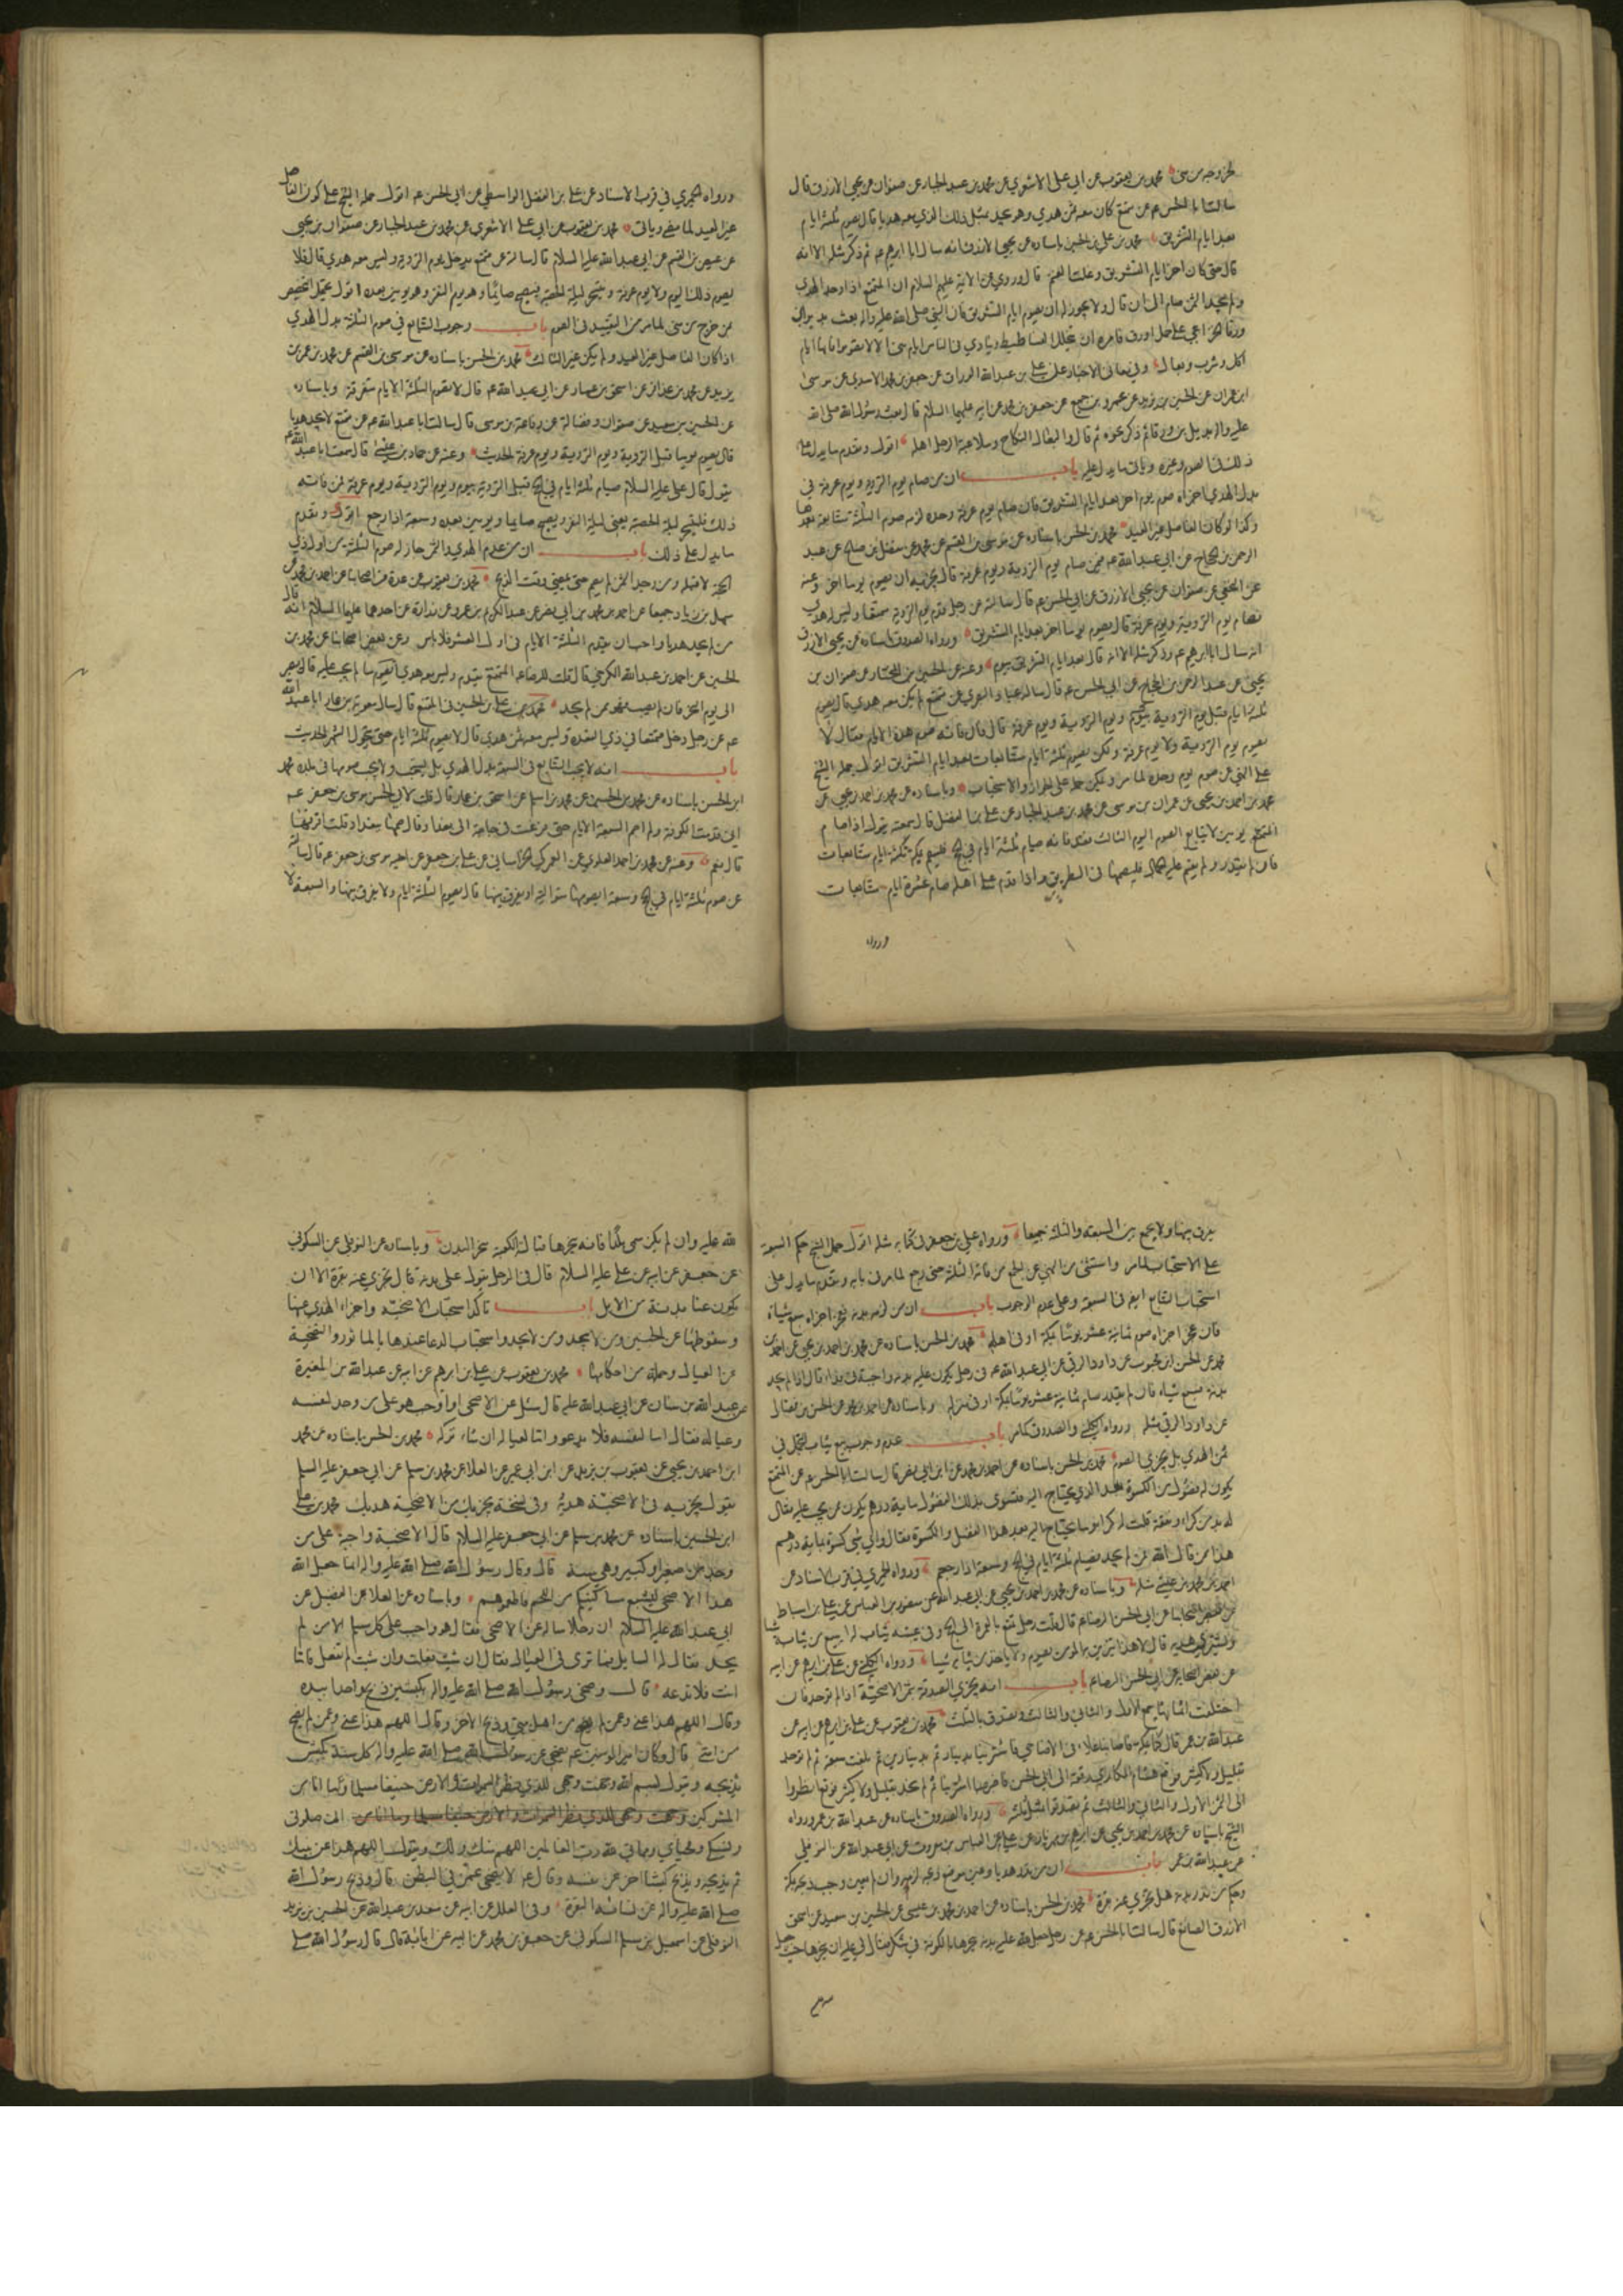 لخروجه من منى محمد بن يعقوب عن ابي علي الاشعري عن محمد بن عبد الجبار عن صفوان عن يحيى الازرق قال
سالت ابا الحسن عم عن متمتع كان معه ثمن هدي وهو يجد بمثل ذلك الذي معه هديا قال يصوم ثلثة ايام
بعد ايام التشريق محمد بن علي بن الحسين باسناده عن يحيى الازرق انه سال ابا ابرهيم عم ثم ذكر مثله الا انه
قال حتى كان اخر ايام التشريق وغلت الغنم قال وروي عن الائمة عليهم السلام ان المتمتع اذا وجد الهدي
ولم يجد الثمن صام الى ان قال ولا يجوز له ان يصوم ايام التشريق فان النبي صلى الله عليه واله بعث بديل بن
ورقا الخزاعي على جمل اورق فامره ان يتخلل الفساطيط وينادي في الناس ايام منى الا لا تصوموا فانها ايام
اكل وشرب وبعال وفي معاني الاخبار عن علي بن عبد الله الوراق عن جعفر بن محمد الاسدي عن موسى
ابن عمران عن الحسين بن يزيد عن عمرو بن جميع عن جعفر بن محمد عن ابيه عليهما السلام قال بعث رسول الله صلى الله
عليه واله بديل بن ورقا ثم ذكر نحوه ثم قال والبعال النكاح وملاعبة الرجل اهله اقول وتقدم ما يدل على
ذلك في الصوم وغيره وياتي ما يدل عليه باب ان من صام يوم التروية ويوم عرفة في
بدل الهدي اجزاه صوم يوم اخر بعد ايام التشريق فان صام يوم عرفة وحده لزمه صوم الثلثة متتابعة بعدها
وكذا لو كان الفاصل غير العيد محمد بن الحسن باسناده عن موسى بن القسم عن محمد عن مفضل بن صالح عن عبد
الرحمن بن الحجاج عن ابي عبد الله عم فيمن صام يوم التروية ويوم عرفة قال يجزيه ان يصوم يوما اخر وعنه
عن النخعي عن صفوان عن يحيى الازرق عن ابي الحسن عم قال سالته عن رجل قدم يوم التروية متمتعا وليس له هدي
فصام يوم التروية ويوم عرفة قال يصوم يوما اخر بعد ايام التشريق ورواه الصدوق باسناده عن يحيى الازرق
انه سال ابا ابرهيم عم وذكر مثله الا انه قال بعد ايام التشريق بيوم وعنه عن الحسين بن المختار عن صفوان بن
يحيى عن عبد الرحمن بن الحجاج عن ابي الحسن عم قال ساله عباد البصري عن متمتع لم يكن معه هدي قال يصوم
ثلثة ايام قبل يوم التروية بيوم ويوم التروية ويوم عرفة قال فان فاته صوم هذه الايام فقال لا
يصوم يوم التروية ولا يوم عرفة ولكن يصوم ثلثة ايام متتابعات بعد ايام التشريق اقول حمله الشيخ
على النهي عن صوم يوم وحده لما مر ويمكن حمله على الجواز والاستحباب وباسناده عن محمد بن احمد بن يحيى عن
محمد بن احمد بن يحيى عن عمران بن موسى عن محمد بن عبد الجبار عن علي بن الفضل قال سمعته يقول اذا صام
المتمتع يومين لا يتابع الصوم اليوم الثالث فقد فاته صيام ثلثة ايام في الحج فليصم بمكة ثلثة ايام متتابعات
فان لم يقدر ولم يقم عليه الجمال فليصمها في الطريق واذا قدم على اهله صام عشرة ايام متتابعات
ورواه
ورواه الحميري في قرب الاسناد عن علي بن الفضل الواسطي عن ابي الحسن عم اقول حمله الشيخ على كون الفاصل
غير العيد لما مضى وياتي محمد بن يعقوب عن ابي علي الاشعري عن محمد بن عبد الجبار عن صفوان بن يحيى
عن عيص بن القسم عن ابي عبد الله عليه السلام قال سالته عن متمتع يدخل يوم التروية وليس معه هدي قال فلا
يصوم ذلك اليوم ولا يوم عرفة ويتسحر ليلة الحصبة فيصبح صائما وهو يوم النفر وهو يومين بعده اقول يحتمل التخصيص
بمن خرج من منى لما مر من التقييد في الصوم باب وجوب التتابع في صوم الثلثة بدل الهدي
اذا كان الفاصل غير العيد ولم يكن غير الثالث محمد بن الحسن باسناده عن موسى بن القسم عن محمد بن عمر بن
يزيد عن محمد بن عذافر عن اسحق بن عمار عن ابي عبد الله عم قال لا تصوم الثلثة الايام متفرقة وباسناده
عن الحسين بن سعيد عن صفوان وفضالة عن رفاعة بن موسى قال سالت ابا عبد الله عم عن متمتع لا يجد هديا
قال يصوم يوما قبل التروية ويوم التروية ويوم عرفة الحديث وعنه عن حماد بن عيسى قال سمعت ابا عبد الله عم
يقول قال علي عليه السلام صيام ثلثة ايام في الحج قبل التروية بيوم ويوم التروية ويوم عرفة فمن فاته
ذلك فليتسحر ليلة الحصبة يعني ليلة النفر ويصبح صايما ويومين بعده وسبعة اذا رجع اقول وتقدم
ما يدل على ذلك باب ان من عدم الهدي والثمن جاز له صوم الثلثة من اول ذي
الحجة لا قبله ومن وجد الثمن لم يصم حتى يمضي وقت الذبح محمد بن يعقوب عن عدة من اصحابنا عن احمد بن محمد عن
سهل بن زياد جميعا عن احمد بن محمد بن ابي نصر عن عبد الكريم بن عمرو عن زرارة عن احدهما عليهما السلام انه قال
من لم يجد هديا واحب ان يقدم الثلثة الايام في اول العشر فلا باس وعن بعض اصحابنا عن محمد بن
الحسين عن احمد بن عبد الله الكرخي قال قلت للرضا عم المتمتع يقدم وليس معه هدي ايصوم ما لم يجب عليه قال يصبر
الى يوم النحر فان لم يصب فهو ممن لم يجد محمد بن علي بن الحسين في المقنع قال سال معوية بن عمار ابا عبد الله
عم عن رجل دخل متمتعا في ذي القعدة وليس معه ثمن هدي قال لا يصوم ثلثة ايام حتى يتحول الشهر الحديث
باب انه لا يجب التتابع في السبعة بدل الهدي بل يستحب ولا يجب صومها في بلده محمد
ابن الحسن باسناده عن محمد بن الحسين عن محمد بن اسلم عن اسحق بن عمار قال قلت لابي الحسن موسى بن جعفر عم
اني قدمت الكوفة ولم اصم السبعة الايام حتى فزعت في حاجة الى بغداد قال صمها ببغداد قلت افرقها
قال نعم وعنه عن محمد بن احمد العلوي عن العمركي الخراساني عن علي بن جعفر عن اخيه موسى بن جعفر عم قال سالته
عن صوم ثلثة ايام في الحج وسبعة ايصومها متوالية او يفرق بينها قال يصوم الثلثة ايام ولا يفرق بينها والسبعة لا
يفرق بينها ولا يجمع بين السبعة والثلثة جميعا ورواه علي بن جعفر في كتابه مثله اقول حمل الشيخ حكم السبعة
على الاستحباب لما مر واستثنى من النهي عن الجمع من فاته الثلثة حتى رجع لما مر في بابه وتقدم ما يدل على
استحباب التتابع ايضا في السبعة وعلى عدم الوجوب باب ان من لزمه بدنة فعجز اجزاه سبع شياه
فان عجز اجزاه صوم ثمانية عشر يوما بمكة او في اهله محمد بن الحسن باسناده عن محمد بن احمد بن يحيى عن احمد بن
محمد عن الحسن ابن محبوب عن داود الرقي عن ابي عبد الله عم في رجل يكون عليه بدنة واجبة في فداء قال اذا لم يجد
بدنة فسبع شياه فان لم يقدر صام ثمانية عشر يوما بمكة او في منزله وباسناده عن احمد بن محمد عن الحسن بن فضال
عن داود الرقي مثله ورواه الكليني والصدوق كما مر باب عدم وجوب بيع ثياب التجمل في
ثمن الهدي بل يجزي الصوم محمد بن الحسن باسناده عن احمد بن محمد عن ابن ابي نصر قال سالت ابا الحسن عم عن المتمتع
يكون له فضول من الكسوة بعد الذي يحتاج اليه فتسوى بذلك الفضول ماية درهم يكون ممن يجب عليه فقال
له بد من كراء ونفقة قلت له كراء وما يحتاج اليه بعد هذا الفضل والكسوة فقال واي شي كسوة بماية درهم
هذا ممن قال الله فمن لم يجد فصيام ثلثة ايام في الحج وسبعة اذا رجعتم ورواه الحميري في قرب الاسناد عن
احمد بن محمد بن عيسى مثله وباسناده عن محمد بن احمد بن يحيى عن ابي عبد الله عن منصور بن العباس عن علي بن اسباط
عن بعض اصحابنا عن ابي الحسن الرضا عم قال قلت رجل تمتع بالعمرة الى الحج وفي عيبته ثياب له ايبيع من ثيابه شيا
ويشتري هديه قال لا هذا يتزين به المؤمن يصوم ولا ياخذ من ثيابه شيا ورواه الكليني عن علي بن ابرهيم عن ابيه
عن بعض اصحابه عن ابي الحسن الرضا عم باب انه يجزي الصدقة بثمن الاضحية اذا لم توجد فان
اختلفت اثمانها جمع الاول والثاني والثالث وتصدق بالثلث محمد بن يعقوب عن علي بن ابرهيم عن ابيه عن
عبد الله بن عمر قال كنا بمكة فاصابنا غلاء في الاضاحي فاشترينا بدينار ثم بدينارين ثم بلغت سبعة ثم لم توجد
بقليل ولا كثير فوقع هشام المكاري رقعة الى ابي الحسن فاخبره بما اشترينا ثم لم نجد بقليل ولا كثير فوقع انظروا
الى الثمن الاول والثاني والثالث ثم تصدقوا بمثل ثلثه ورواه الصدوق باسناده عن عبد الله بن عمر ورواه
الشيخ باسناده عن محمد بن احمد بن يحيى عن ابرهيم بن مهزيار عن علي عن العباس بن معروف عن ابي عبد الله عن النوفلي
عن عبد الله بن عمر باب ان من نذر هديا وعين موضع ذبحه لزمه وان لم يعين وجب ذبحه بمكة
وحكم من نذر بدنة هل يجزي عنه بقرة محمد بن الحسن باسناده عن احمد بن محمد بن عيسى عن الحسين بن سعيد عن اسحق
الازرق الصائغ قال سالت ابا الحسن عم عن رجل جعل لله عليه بدنة ينحرها بالكوفة في شكر فقال لي عليه ان ينحرها حيث جعل
لله عليه وان لم يكن سمى بلدا فانه ينحرها قبالة الكعبة منحر البدن وباسناده عن النوفلي عن السكوني
عن جعفر عن ابيه عن علي عليه السلام قال في الرجل يقول علي بدنة قال تجزي عنه بقرة الا ان
يكون عنا بدنة من الابل باب تاكد استحباب الاضحية واجزاء الهدي عنها
وسقوطها عن الجنين ومن لا يجد ومن لا يجد واستحباب الدعا عندها بالماثور والتضحية
عن العيال وجملة من احكامها محمد بن يعقوب عن علي بن ابرهيم عن ابيه عن عبد الله بن المغيرة
عن عبد الله بن سنان عن ابي عبد الله عليه قال سئل عن الاضحى اواجب هو على من وجد لنفسه
وعياله فقال اما لنفسه فلا يدعه واما لعياله ان شاء تركه محمد بن الحسن باسناده عن محمد
ابن احمد بن يحيى عن يعقوب بن يزيد عن ابن ابي عمير عن العلا عن محمد بن مسلم عن ابي جعفر عليه السلم
يقول يجزيه في الاضحية هديه وفي نسخة يجزيك من الاضحية هديك محمد بن علي
ابن الحسين باسناده عن محمد بن مسلم عن ابي جعفر عليه السلام قال الاضحية واجبة على من
وجد من صغير او كبير وهي سنة قال وقال رسول الله صلى الله عليه واله انما جعل الله
هذا الاضحى ليشبع مساكينكم من اللحم فاطعموهم وباسناده عن العلا عن الفضيل عن
ابي عبد الله عليه السلام ان رجلا ساله عن الاضحى فقال هو واجب على كل مسلم الا من لم
يجد فقال له السايل فما ترى في العيال فقال ان شيت فعلت وان شيت لم تفعل فاما
انت فلا تدعه قال وضحى رسول الله صلى الله عليه واله بكبشين ذبح واحدا بيده
وقال اللهم هذا عني وعمن لم يضح من اهل بيتي وذبح الاخر وقال اللهم هذا عني وعمن لم يضح
من امتي قال وكان امير المؤمنين عم يضحي عن رسول الله صلى الله عليه واله كل سنة بكبش
يذبحه ويقول بسم الله وجهت وجهي للذي فطر السموات والارض حنيفا مسلما وما انا من
المشركين وجهت وجهي للذي فطر السموات والارض حنيفا مسلما وما انا من ان صلوتي
ونسكي ومحياي ومماتي لله رب العالمين اللهم منك ولك ويقول اللهم هذا عن نبيك
ثم يذبحه ويذبح كبشا اخر عن نفسه وقال عم لا يضحى عمن في البطن قال وذبح رسول الله
صلى الله عليه واله عن نسائه البقرة وفي العلل عن ابيه عن سعد بن عبد الله عن الحسين بن يزيد
النوفلي عن اسمعيل بن مسلم السكوني عن جعفر بن محمد عن ابيه عن ابائه قال قال رسول الله صلى